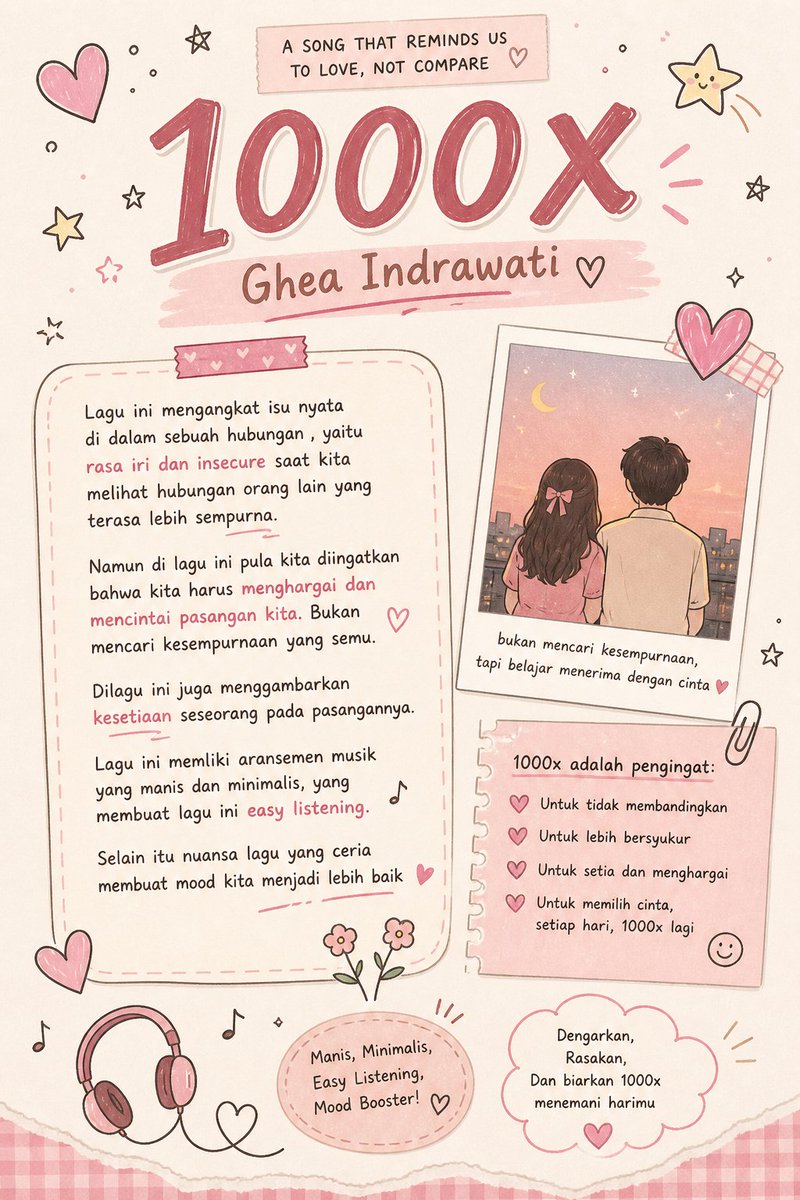 A SONG THAT REMINDS US
TO LOVE, NOT COMPARE
1000x
Ghea Indrawati
Lagu ini mengangkat isu nyata
di dalam sebuah hubungan , yaitu
rasa iri dan insecure saat kita
melihat hubungan orang lain yang
terasa lebih sempurna.
Namun di lagu ini pula kita diingatkan
bahwa kita harus menghargai dan
mencintai pasangan kita. Bukan
mencari kesempurnaan yang semu.
Dilagu ini juga menggambarkan
kesetiaan seseorang pada pasangannya.
Lagu ini memliki aransemen musik
yang manis dan minimalis, yang
membuat lagu ini easy listening.
Selain itu nuansa lagu yang ceria
membuat mood kita menjadi lebih baik
bukan mencari kesempurnaan,
tapi belajar menerima dengan cinta
1000x adalah pengingat:
Untuk tidak membandingkan
Untuk lebih bersyukur
Untuk setia dan menghargai
Untuk memilih cinta,
setiap hari, 1000x lagi
Manis, Minimalis,
Easy Listening,
Mood Booster!
Dengarkan,
Rasakan,
Dan biarkan 1000x
menemani harimu